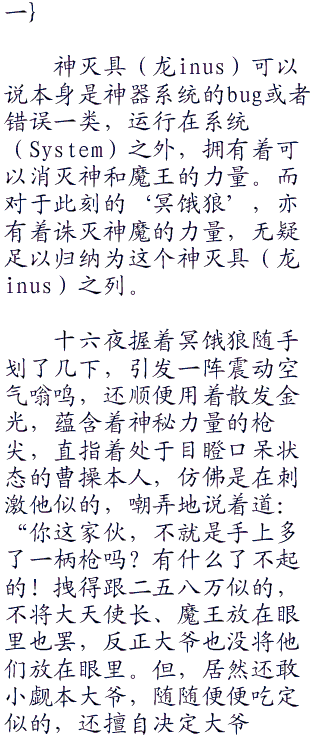 一}
神灭具（龙inus）可以
说本身是神器系统的bug或者
错误一类，运行在系统
（System）之外，拥有着可
以消灭神和魔王的力量。而
对于此刻的‘冥饿狼’，亦
有着诛灭神魔的力量，无疑
足以归纳为这个神灭具（龙
inus）之列。
十六夜握着冥饿狼随手
划了几下，引发一阵震动空
气嗡鸣，还顺便用着散发金
光，蕴含着神秘力量的枪
尖，直指着处于目瞪口呆状
态的曹操本人，仿佛是在刺
激他似的，嘲弄地说着道：
“你这家伙，不就是手上多
了一柄枪吗？有什么了不起
的！拽得跟二五八万似的，
不将大天使长、魔王放在眼
里也罢，反正大爷也没将他
们放在眼里。但，居然还敢
小觑本大爷，随随便便吃定
似的，还擅自决定大爷